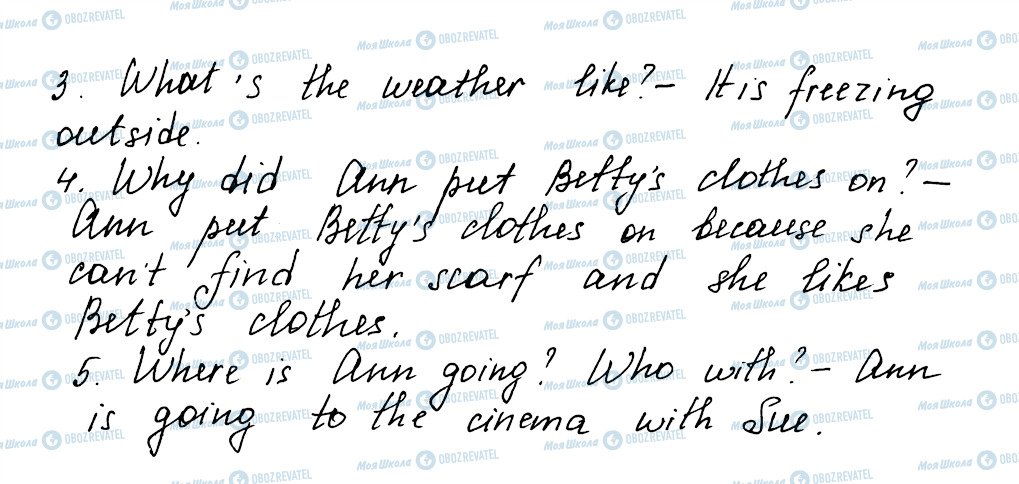 3. What's the weather like? - It is freezing
outside.
4. Why did Ann put Betty's clothes on? -
Ann put Betty's clothes on because she
can't find her scarf and she likes
Betty's clothes.
5. Where is Ann going? Who with? - Ann
is going to the cinema with Sue.